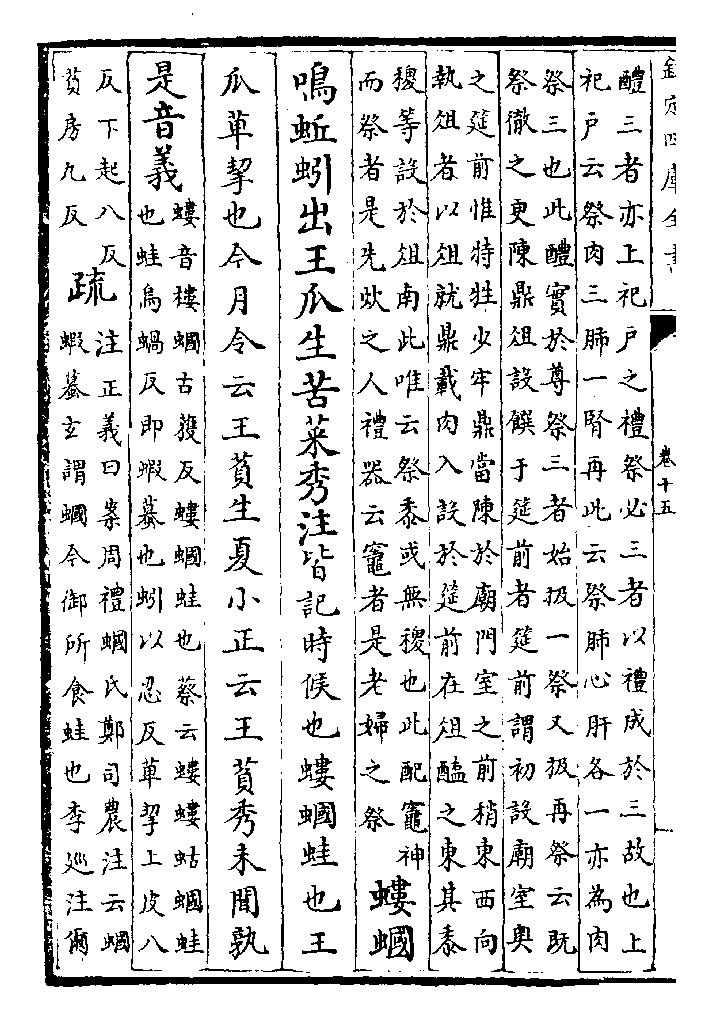 欽定四庫全書
卷十五
醴三者亦上祀戶之禮祭必三者以禮成於三故也上
祀戶云祭肉三肺一腎再此云祭肺心肝各一亦為肉
祭三也此醴實於尊祭三者始扱一祭又扱再祭云既
祭徹之更陳鼎俎設饌于筵前者筵前謂初設廟室奧
之筵前惟特牲少牢鼎當陳於廟門室之前稍東西向
執俎者以俎就鼎載肉入設於筵前在俎醢之東其黍
稷等設於俎南此唯云祭黍或無稷也此配竈神
而祭者是先炊之人禮器云竈者是老婦之祭
螻蟈
鳴蚯蚓出王瓜生苦菜秀注皆記時候也螻蟈蛙也王
瓜萆挈也今月令云王萯生夏小正云王萯秀未聞孰
是音義
螻音樓蟈古獲反螻蟈蛙也蔡云螻螻蛄蟈蛙
也蛙烏蝸反即蝦蟇也蚓以忍反萆挈上皮八
反下起八反
萯房九反
疏
注正義曰案周禮蟈氏鄭司農注云蟈
蝦蟇玄謂蟈今御所食蛙也李廵注爾